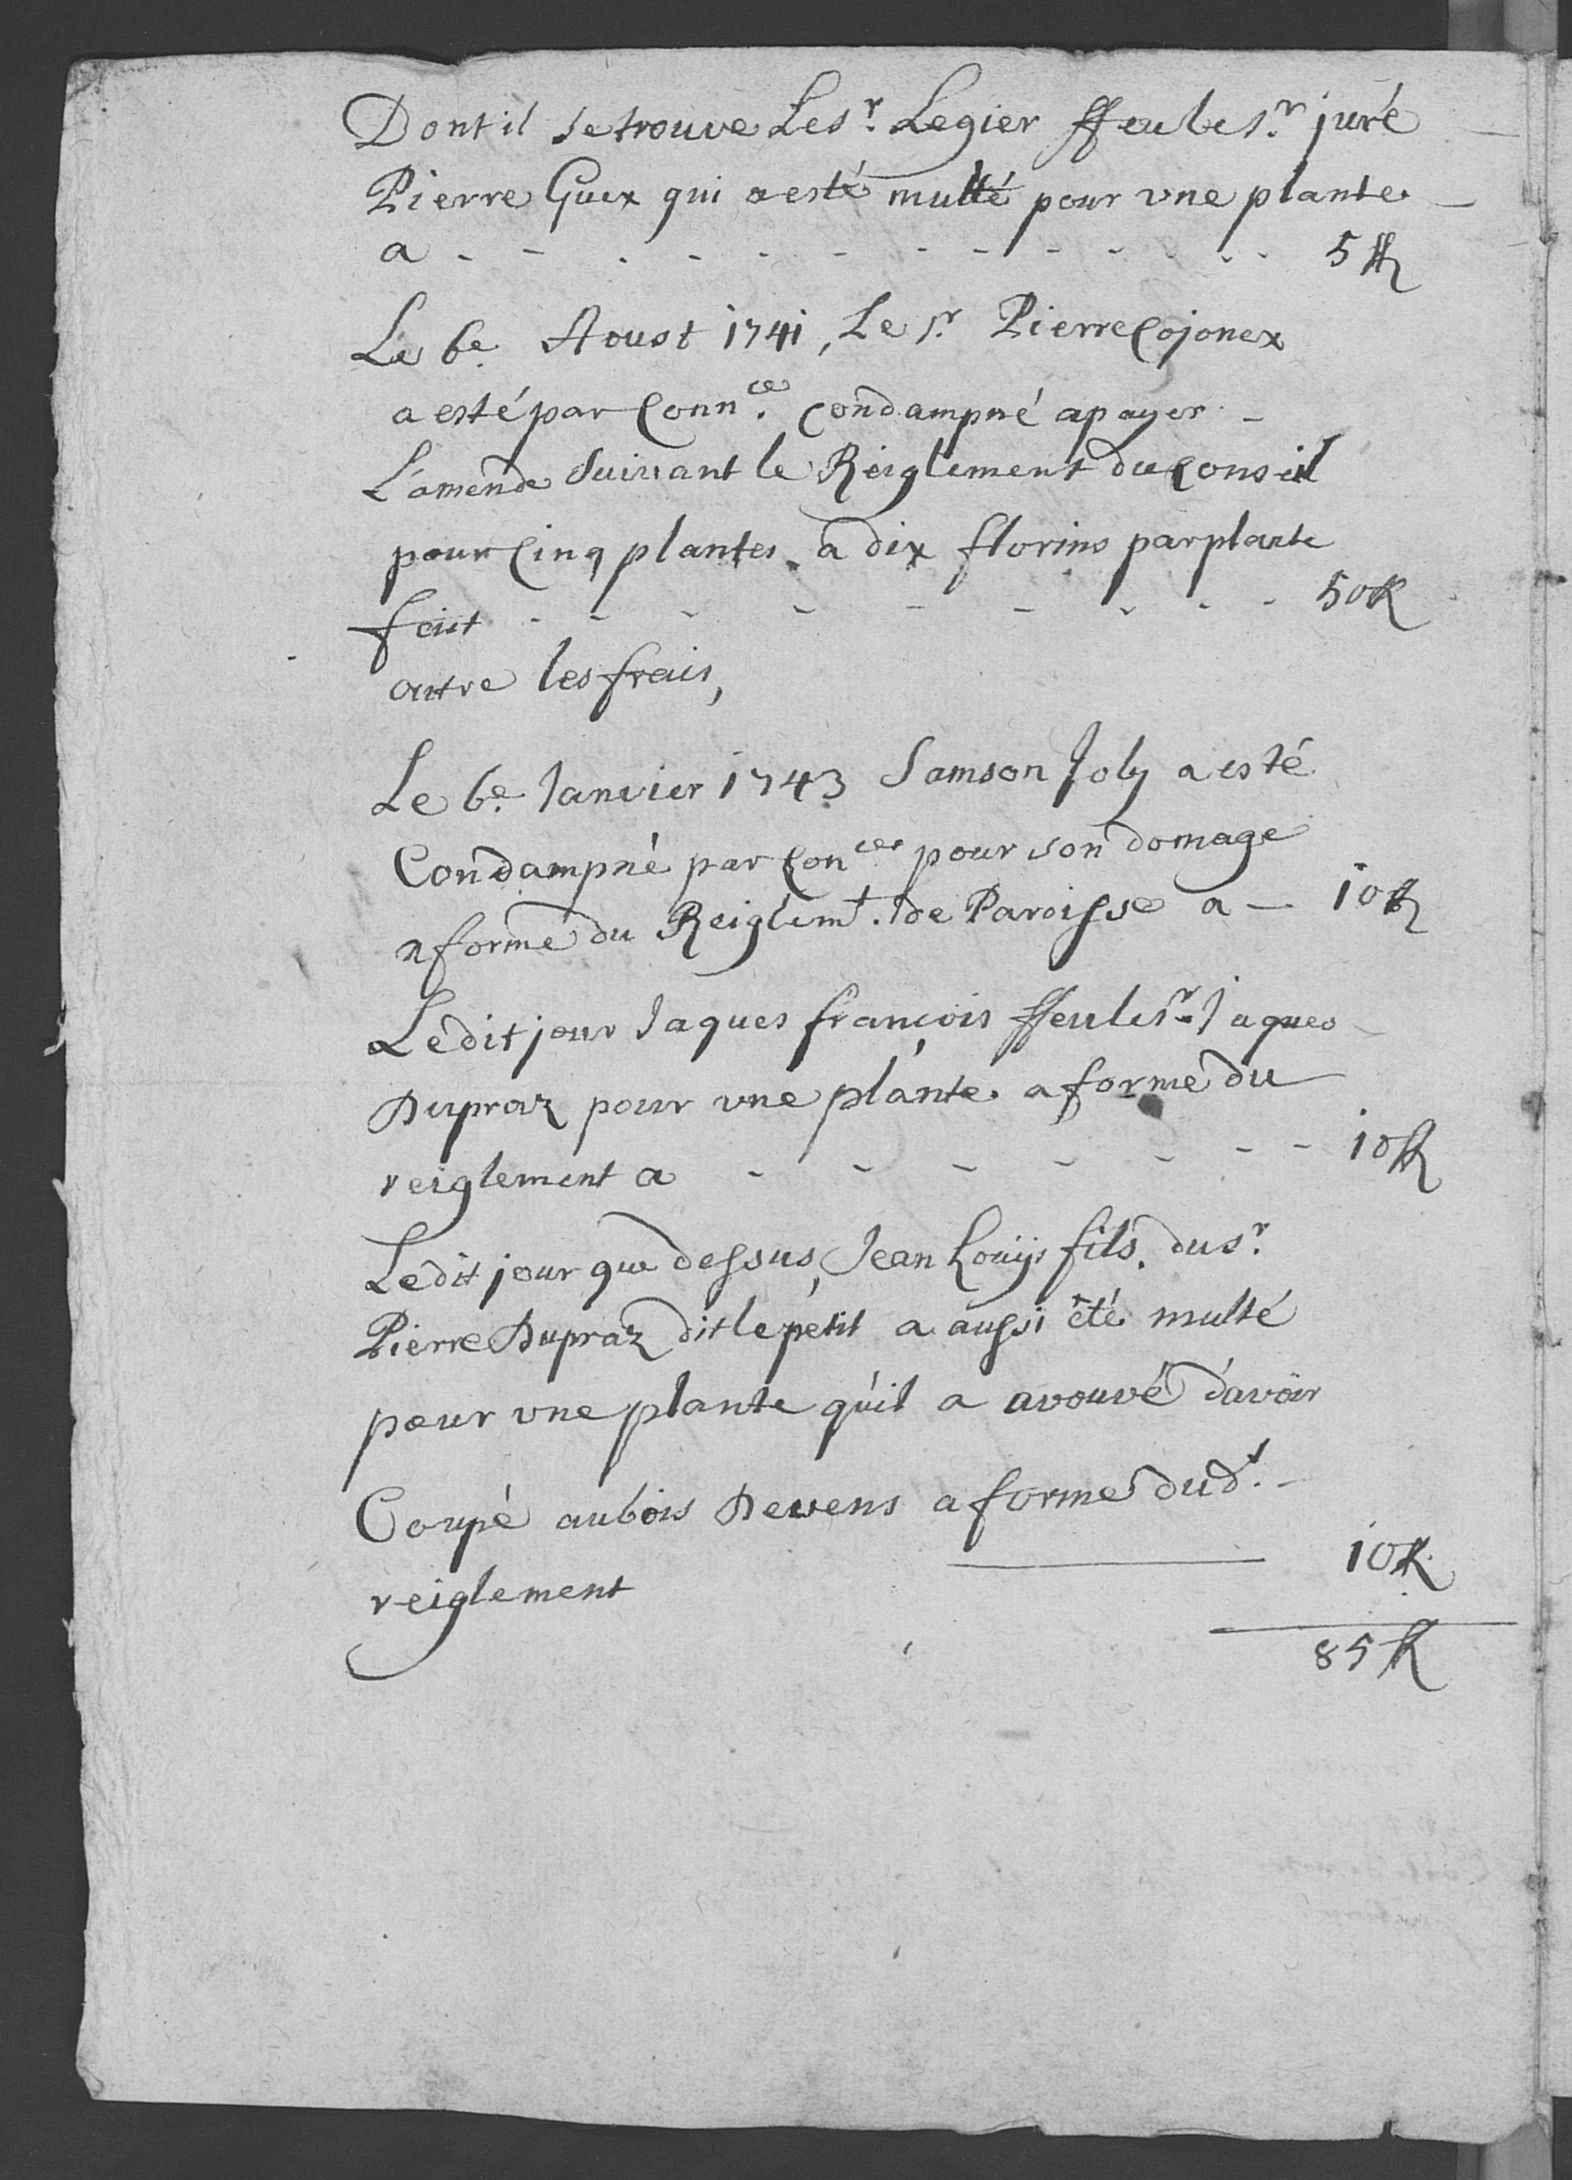 Dont il se trouve Le sr. Legier ffeu le sr. juré
Pierre Guex qui a esté multé pour vne plante
a - - - - - - - - - - - 5 ff
Le 6e. Aoust 1741, Le sr. Pierre Cojonex
a esté par Connce. Condampné a payer
L'amende Suivant le Reiglement du Conseil
pour Cinq plantes a dix florins par plante
fait - - - - - - - - 50 ff
outre les frais,
Le 6e. Janvier 1743 Samson Joly a esté
Condampné par Conce. pour son domage
a forme du Reiglemt. de Paroisse a — 10 ff
Ledit jour Jaques françois ffeu le sr. Jaques
Dupraz pour vne plante a forme du
reiglement a - - - - - - - 10 ff
Ledit jour que dessus, Jean Louÿs fils du sr.
Pierre Dupraz dit le petit a aussi été multé
pour vne plante qu'il a avouvé d'avoir
Coupé au bois Devens a forme dudt.
reiglement — 10 ff
85 ff